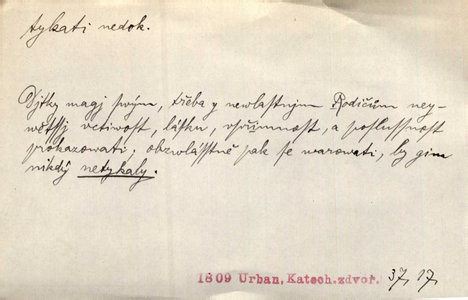 tykati nedok.
Djtky magj swým, třeba y newlastnjm Rodičům ney-
wětssj uctiwost, lásku, vpřjmnost, a poslussnost
prokazowati, obzwlásstně pak se warowati, by gim
nikdý netykaly.
1809 Urban, Katech. zdvoř. 37, 17,